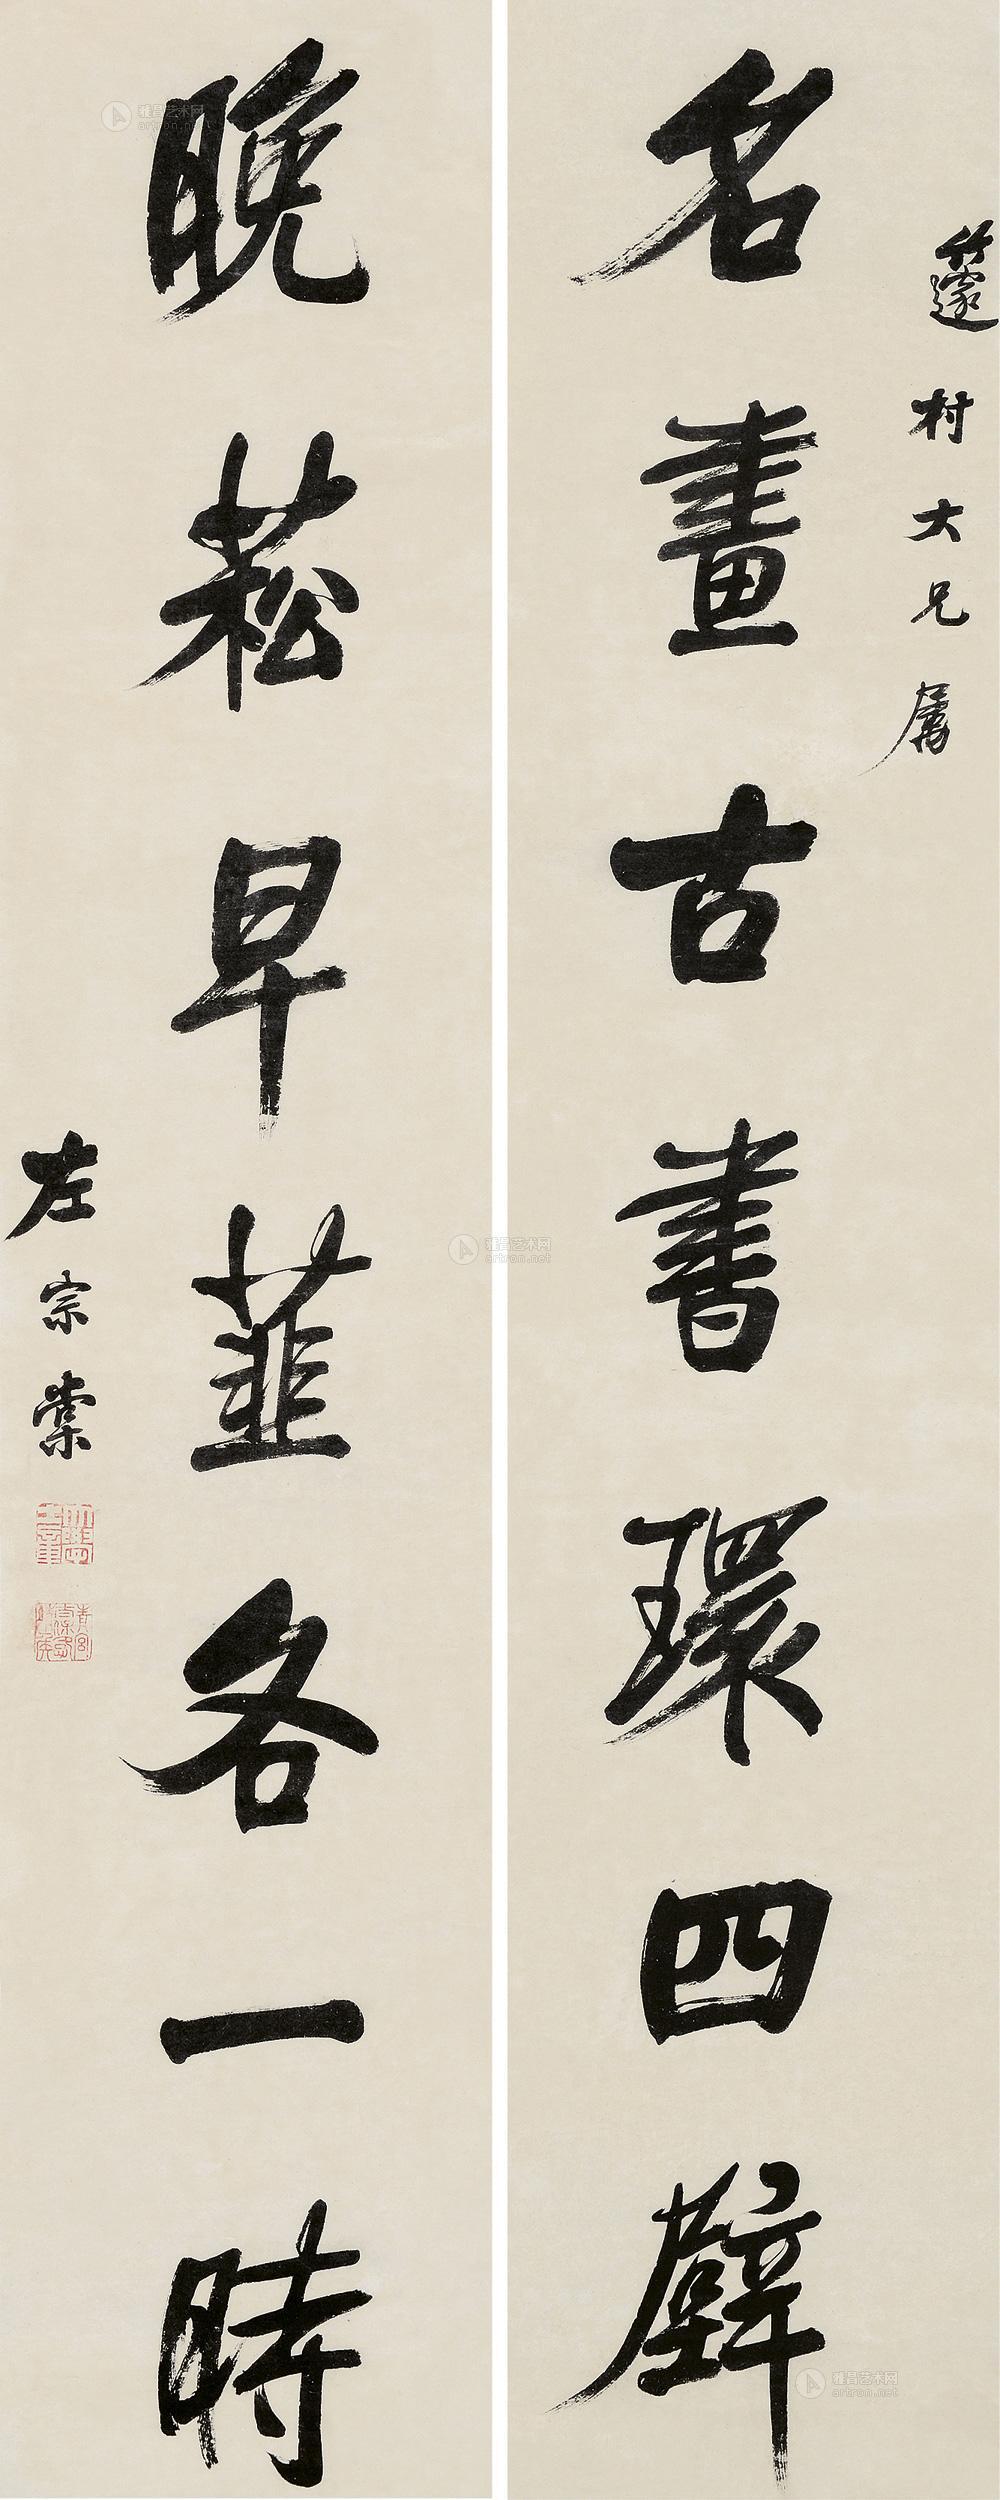 籧村大兄屬
名畫古書環四壁
晚菘早韮各一時
左宗棠
雅昌艺术网
artron.net
雅昌艺术网
artron.net
雅昌艺术网
artron.net